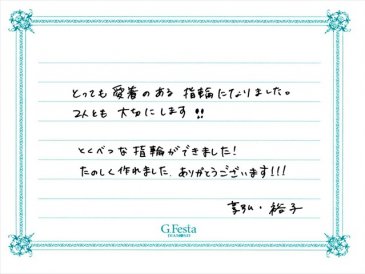 とっても愛着のある指輪になりました。
2人とも大切にします!!
とくべつな指輪ができました!
たのしく作れました。ありがとうございます!!!
・裕子
G.Festa
DIAMOND